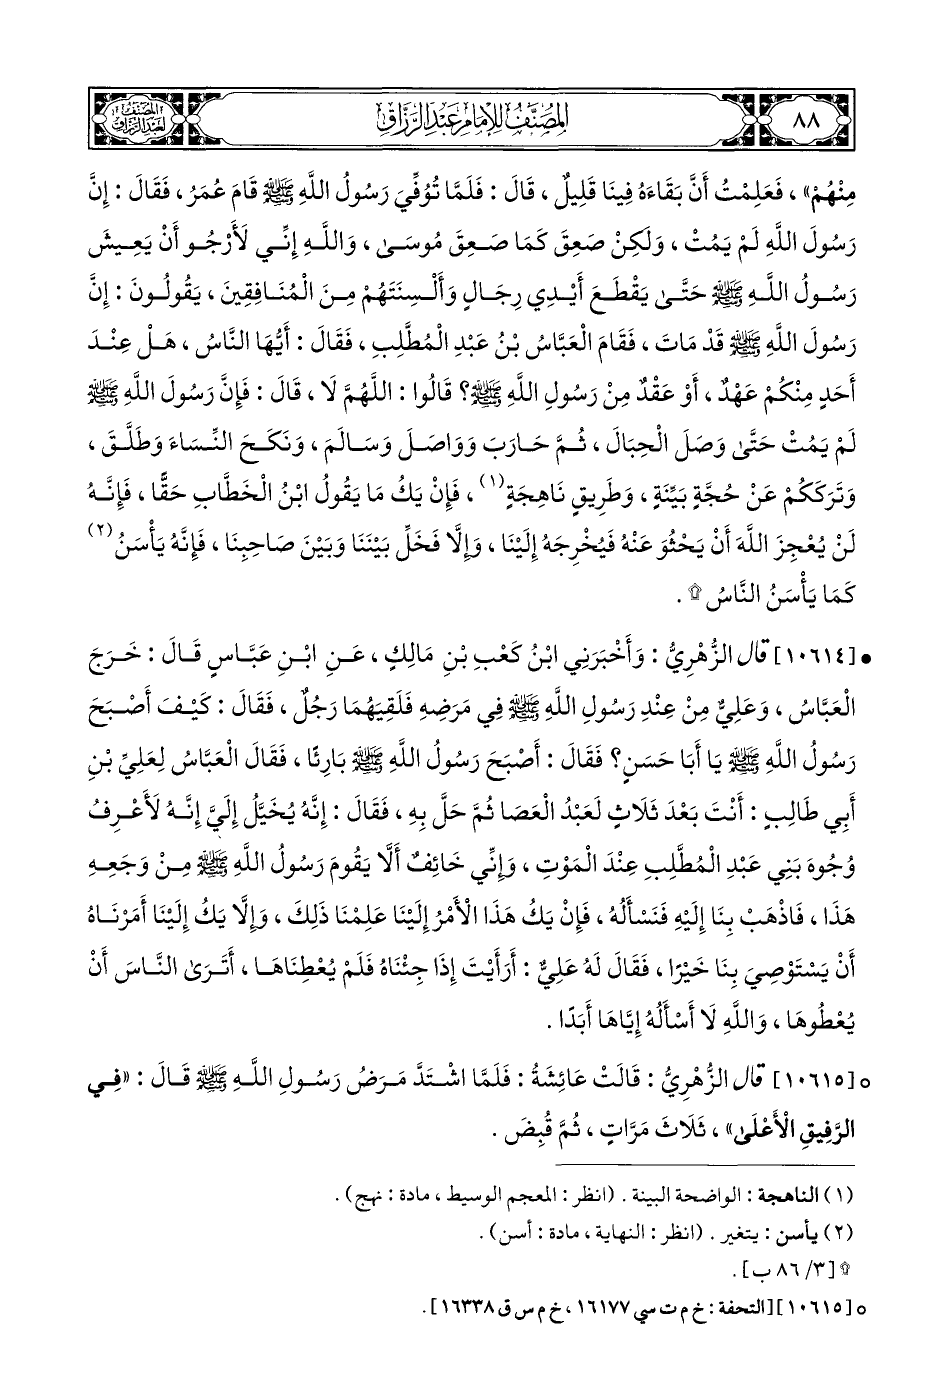 ٨٨
المُصَنَّفُ لِلإِمَامِ عَبْدِ الرَّزَّاقِ
المصنف لعبد الرزاق
مِنْهُمْ» ، فَعَلِمْتُ أَنَّ بَقَاءَهُ فِينَا قَلِيلٌ ، قَالَ : فَلَمَّا تُوُفِّيَ رَسُولُ اللَّهِ ﷺ قَامَ عُمَرُ ، فَقَالَ : إِنَّ
رَسُولَ اللَّهِ لَمْ يَمُتْ ، وَلَكِنْ صَعِقَ كَمَا صَعِقَ مُوسَىٰ ، وَاللَّهِ إِنِّي لَأَرْجُو أَنْ يَعِيشَ
رَسُولُ اللَّهِ ﷺ حَتَّىٰ يَقْطَعَ أَيْدِي رِجَالٍ وَأَلْسِنَتَهُمْ مِنَ الْمُنَافِقِينَ ، يَقُولُونَ : إِنَّ
رَسُولَ اللَّهِ ﷺ قَدْ مَاتَ ، فَقَامَ الْعَبَّاسُ بْنُ عَبْدِ الْمُطَّلِبِ ، فَقَالَ : أَيُّهَا النَّاسُ ، هَلْ عِنْدَ
أَحَدٍ مِنْكُمْ عَهْدٌ ، أَوْ عَقْدٌ مِنْ رَسُولِ اللَّهِ ﷺ؟ قَالُوا : اللَّهُمَّ لَا ، قَالَ : فَإِنَّ رَسُولَ اللَّهِ ﷺ
لَمْ يَمُتْ حَتَّىٰ وَصَلَ الْحِبَالَ ، ثُمَّ حَارَبَ وَوَاصَلَ وَسَالَمَ ، وَنَكَحَ النِّسَاءَ وَطَلَّقَ ،
وَتَرَكَكُمْ عَنْ حُجَّةٍ بَيِّنَةٍ ، وَطَرِيقٍ نَاهِجَةٍ(١) ، فَإِنْ يَكُ مَا يَقُولُ ابْنُ الْخَطَّابِ حَقًّا ، فَإِنَّهُ
لَنْ يُعْجِزَ اللَّهَ أَنْ يَحْثُوَ عَنْهُ فَيُخْرِجَهُ إِلَيْنَا ، وَإِلَّا فَخَلِّ بَيْنَنَا وَبَيْنَ صَاحِبِنَا ، فَإِنَّهُ يَأْسَنُ(٢)
كَمَا يَأْسَنُ النَّاسُ ۩ .
• [١٠٦١٤] قال الزُّهْرِيُّ : وَأَخْبَرَنِي ابْنُ كَعْبِ بْنِ مَالِكٍ ، عَنِ ابْنِ عَبَّاسٍ قَالَ : خَرَجَ
الْعَبَّاسُ ، وَعَلِيٌّ مِنْ عِنْدِ رَسُولِ اللَّهِ ﷺ فِي مَرَضِهِ فَلَقِيَهُمَا رَجُلٌ ، فَقَالَ : كَيْفَ أَصْبَحَ
رَسُولُ اللَّهِ ﷺ يَا أَبَا حَسَنٍ؟ فَقَالَ : أَصْبَحَ رَسُولُ اللَّهِ ﷺ بَارِئًا ، فَقَالَ الْعَبَّاسُ لِعَلِيِّ بْنِ
أَبِي طَالِبٍ : أَنْتَ بَعْدَ ثَلَاثٍ لَعَبْدُ الْعَصَا ثُمَّ حَلَّ بِهِ ، فَقَالَ : إِنَّهُ يُخَيَّلُ إِلَيَّ إِنَّهُ لَأَعْرِفُ
وُجُوهَ بَنِي عَبْدِ الْمُطَّلِبِ عِنْدَ الْمَوْتِ ، وَإِنِّي خَائِفٌ أَلَّا يَقُومَ رَسُولُ اللَّهِ ﷺ مِنْ وَجَعِهِ
هَذَا ، فَاذْهَبْ بِنَا إِلَيْهِ فَنَسْأَلُهُ ، فَإِنْ يَكُ هَذَا الْأَمْرُ إِلَيْنَا عَلِمْنَا ذَلِكَ ، وَإِلَّا يَكُ إِلَيْنَا أَمَرْنَاهُ
أَنْ يَسْتَوْصِيَ بِنَا خَيْرًا ، فَقَالَ لَهُ عَلِيٌّ : أَرَأَيْتَ إِذَا جِئْنَاهُ فَلَمْ يُعْطِنَاهَا ، أَتَرَىٰ النَّاسَ أَنْ
يُعْطُوهَا ، وَاللَّهِ لَا أَسْأَلُهُ إِيَّاهَا أَبَدًا .
٥ [١٠٦١٥] قال الزُّهْرِيُّ : قَالَتْ عَائِشَةُ : فَلَمَّا اشْتَدَّ مَرَضُ رَسُولِ اللَّهِ ﷺ قَالَ : «فِي
الرَّفِيقِ الْأَعْلَىٰ» ، ثَلَاثَ مَرَّاتٍ ، ثُمَّ قُبِضَ .
(١) الناهجة : الواضحة البينة . (انظر : المعجم الوسيط ، مادة : نهج) .
(٢) يأسن : يتغير . (انظر : النهاية ، مادة : أسن) .
۩ [٣/ ٨٦ ب] .
٥ [١٠٦١٥] [التحفة : خ م ت سي ١٦١٧٧ ، خ م س ق ١٦٣٣٨] .